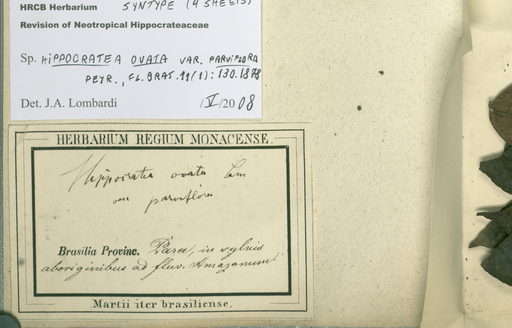 HRCB Herbarium SYNTYPE (4 SHEETS)
Revision of Neotropical Hippocrateaceae
Sp. HIPPOCRATEA OVATA VAR. PARVIFLORA
PEYR., FL. BRAS. 11(1): 130. 1878
Det. J.A. Lombardi /V/2008
HERBARIUM REGIUM MONACENSE.
Hippocratea ovata Lam
var parviflora
Brasilia Provinc. Párá, in sylvis
aboriginibus ad fluv. Amazonum
Martii iter brasiliense.